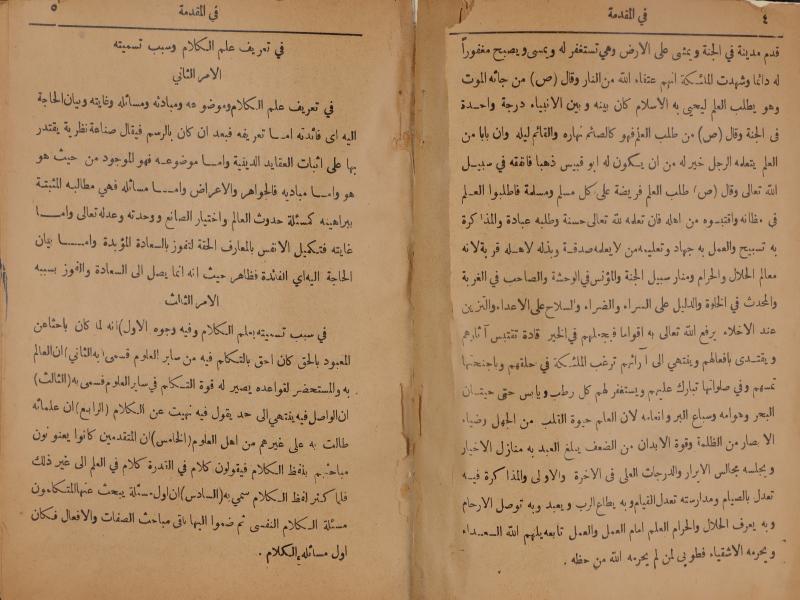 ٤
في المقدمة
قدم مدينة في الجنة ويمشى على الارض وهي تستغفر له ويمسى ويصبح مغفوراً
له دائما وشهدت الملئكة انهم عتقاء الله من النار وقال (ص) من جائه الموت
وهو يطلب العلم ليحيى به الاسلام كان بينه وبين الانبياء درجة واحدة
فى الجنة وقال (ص) من طلب العلم فهو كالصائم نهاره والقائم ليله وان بابا من
العلم يتعلمه الرجل خير له من ان يكون له ابو قبيس ذهبا فانفقه في سبيل
الله تعالى وقال (ص) طلب العلم فريضة على كل مسلم ومسلمة فاطلبوا العلم
في مظانه واقتبسوه من اهله فان تعلمه لله تعالى حسنة وطلبه عبادة والمذاكرة
به تسبيح والعمل به جهاد وتعليمه من لا يعلمه صدقة وبذله لاهله قربة لانه
معالم الحلال والحرام ومنار سبيل الجنة والمؤنس في الوحشة والصاحب في الغربة
والمحدث في الخلوة والدليل على السراء والضراء والسلاح على الاعداء والتزين
عند الاخلاء يرفع الله تعالى به اقواما فيجعلهم في الخير قادة تقتبس آثارهم
ويقتدى بافعالهم وينتهى الى آرائهم ترغب الملئكة في خلقهم وباجنحتها
تمسهم وفي صلواتها تبارك عليهم ويستغفر لهم كل رطب ويابس حتى حيتان
البحر وهوامه وسباع البر وانعامه لان العلم حيوة القلب من الجهل وضياء
الابصار من الظلمة وقوة الابدان من الضعف يبلغ العبد به منازل الاخيار
وبجلسه مجالس الابرار والدرجات العلى فى الاخرة والاولى والمذاكرة فيه
تعدل بالصيام ومدارسته تعدل القيام وبه يطاع الرب ويعبد وبه توصل الارحام
وبه يعرف الحلال والحرام العلم امام العمل والعمل تابعه يلهم الله السعداء
ويحرمه الاشقياء فطوبى لمن لم يحرمه الله من حظه .
في المقدمة
٥
في تعريف علم الكلام وسبب تسميته
الامر الثاني
في تعريف علم الكلام وموضوعه ومبادئه ومسائله وغايته وبيان الحاجة
اليه اى فائدته اما تعريفه فبعد ان كان بالرسم فيقال صناعة نظرية يقتدر
بها على اثبات العقايد الدينية واما موضوعه فهو الموجود من حيث هو
هو واما مباديه فالجواهر والاعراض واما مسائله فهي مطالبه المثبتة
ببراهينه كمسئلة حدوث العالم واختيار الصانع ووحدته وعدله تعالى واما
غايته فتكميل الانفس بالمعارف الحقة لتفوز بالسعادة المؤبدة واما بيان
الحاجة اليه اي الفائدة فظاهر حيث انه انما يصل الى السعادة والفوز بسببه
الامر الثالث
في سبب تسميته بعلم الكلام وفيه وجوه (الاول) انه لما كان باحثا عن
المعبود بالحق كان احق بالتكلم فيه من ساير العلوم فسمى به (الثاني) ان العالم
به والمستحضر لقواعده يصير له قوة التكلم في ساير العلوم فسمى به (الثالث)
ان الواصل فيه ينتهي الى حد يقول فيه نهيت عن الكلام (الرابع) ان علمائه
طالت به على غيرهم من اهل العلوم (الخامس) ان المتقدمين كانوا يعنونون
مباحثهم بلفظ الكلام فيقولون كلام في القدرة كلام في العلم الى غير ذلك
فلما كثر لفظ الكلام سمي به (السادس) ان اول مسئلة يبحث عنها المتكلمون
مسئلة الكلام النفسي ثم ضموا اليها باقى مباحث الصفات والافعال فكان
اول مسائله الكلام .